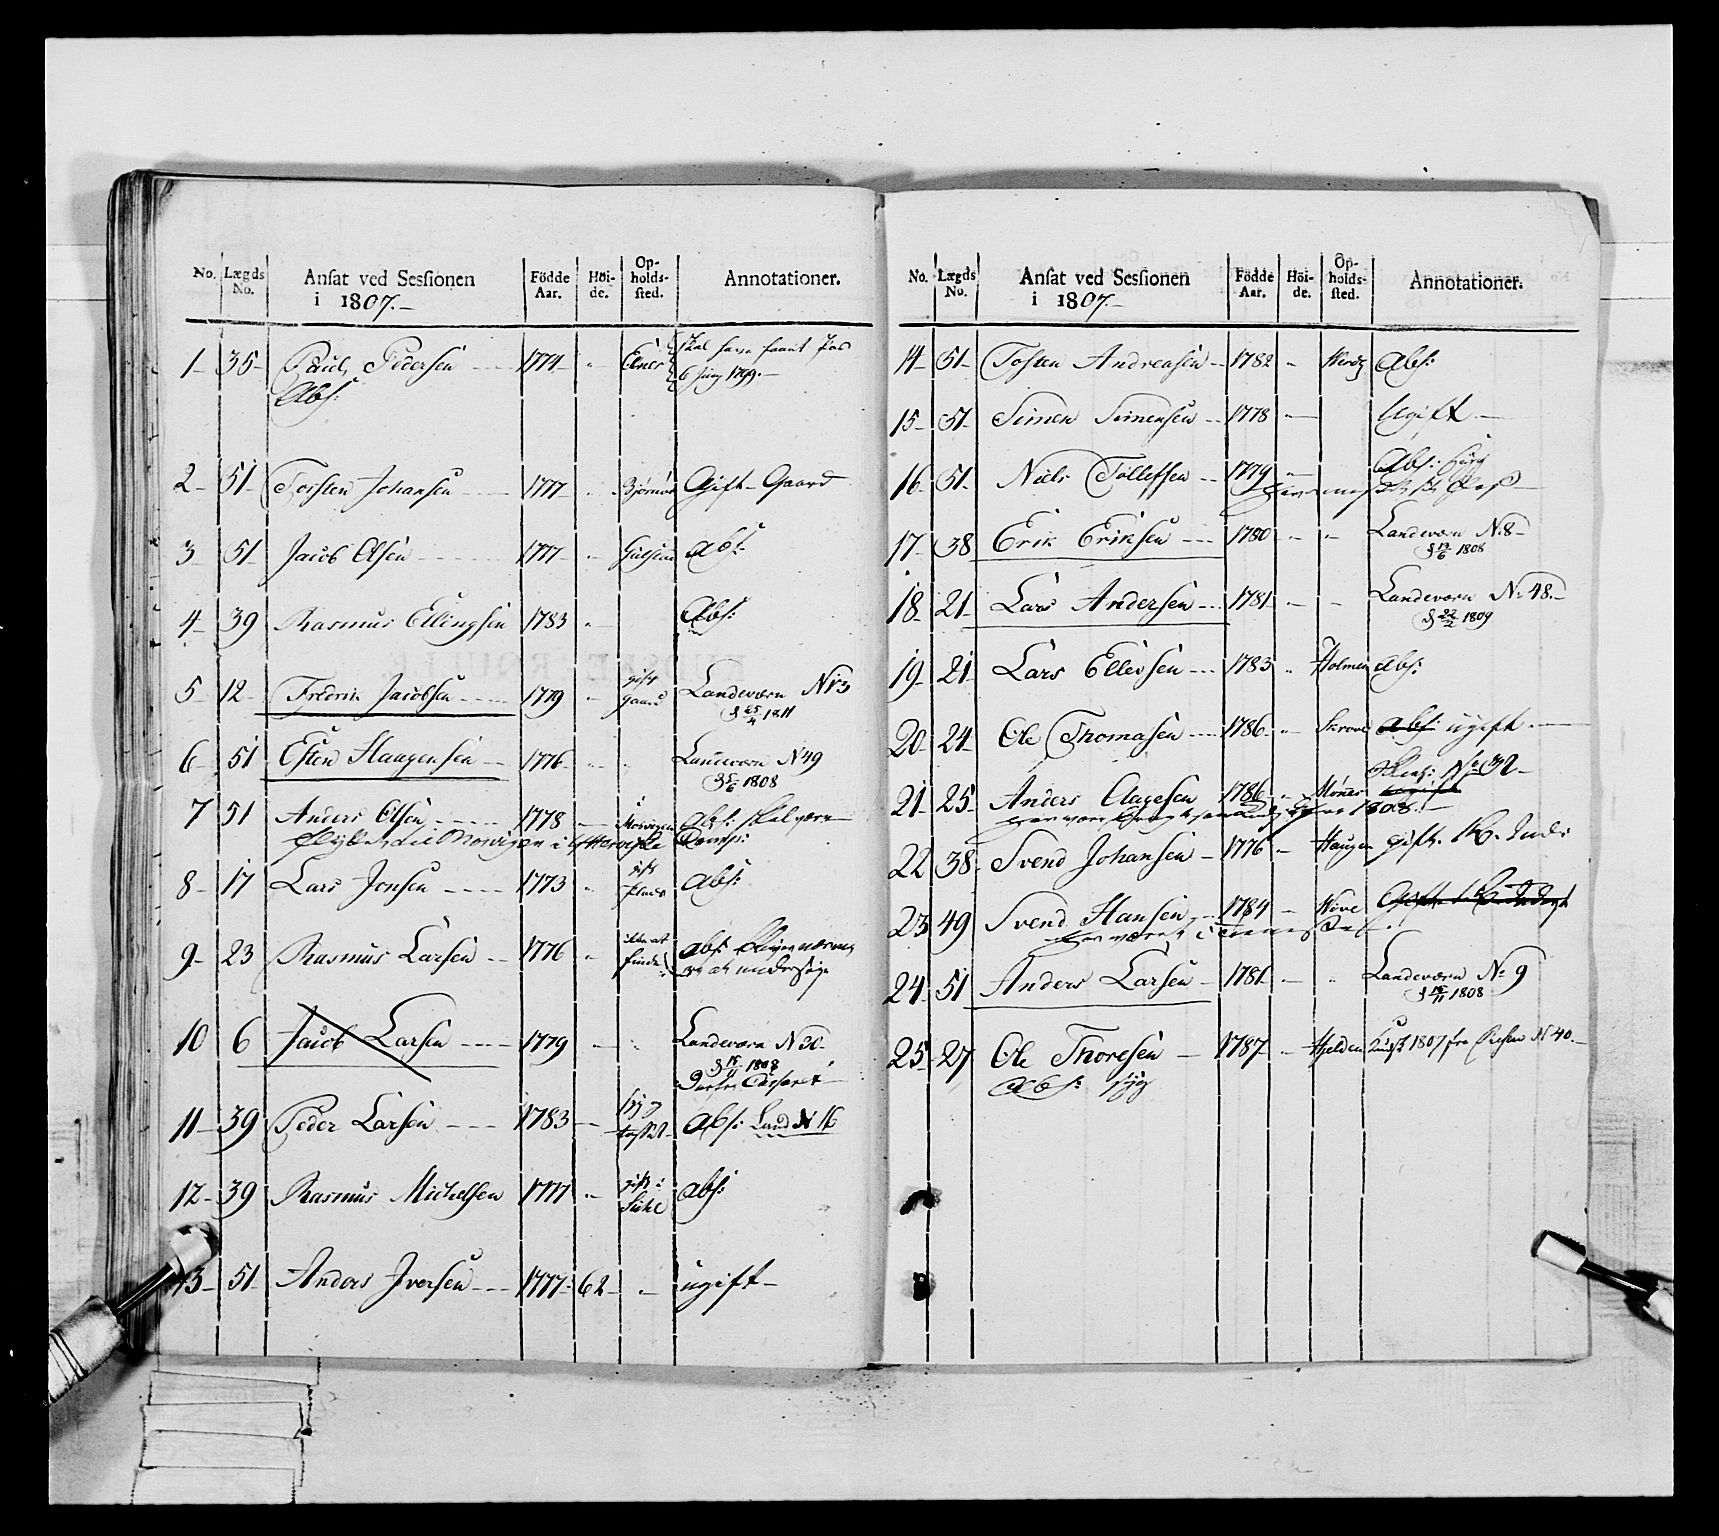 No. Lægds No. Ansat ved Sessionen i 1807.- Födde Aar. Höi-de. Op-holds-sted. Annotationer.
1 35 Paul Pedersen 1774 Elnes skal have faaet Pas
Abs: 6 Juny 1799.
2 51 Torsten Johansen 1777 Gift Gaard
3 51 Jacob Olsen 1777 abs:
4 39 Rasmus Ellingsen 1783 Abs:
5 12 Fredrik Jacobsen 1779 gift gaard Landeværn N 13
25/4 1811
6 51 Esten Haagensen 1776 Landeværn N 49
5/6 1808
7 51 Anders Olsen 1778 abs: skal være
8 17 Lars Jonsen 1773 gift abs:
9 23 Rasmus Larsen 1776 ikke at finde abs:
at undersøge
10 6 Jacob Larsen 1779 Landeværn N 20
15/11 1808
11 39 Peder Larsen 1783 abs: Land N 16
12 39 Rasmus Michelsen 1777 gift: abs:
13 51 Anders Iversen 1777 62 ugift
No. Lægds No. Ansat ved Sessionen i 1807.- Födde Aar. Höi-de. Op-holds-sted. Annotationer.
14 51 Tosten Andreasen 1782 Abs:
15 51 Simen Simensen 1778 Ugift
16 51 Niels Tollefsen 1779 Abs:
17 38 Erik Eriksen 1780 Landeværn N 8
13/6 1808
18 21 Lars Andersen 1781 Landeværn No 48
22/2 1809
19 21 Lars Ellevsen 1783 Holmen abs:
20 24 Ole Thomasen 1786 Skrove abs: ugift
21 25 Anders Aagesen 1786 No 32
1808
22 38 Svend Johansen 1776 Haugen gift
23 49 Svend Hansen 1784 Hove Gift
24 51 Anders Larsen 1781 Landeværn No 9
15/11 1808
25 27 Ole Thoresen 1787 Hjelden 1807 fra N 40
abs: syg